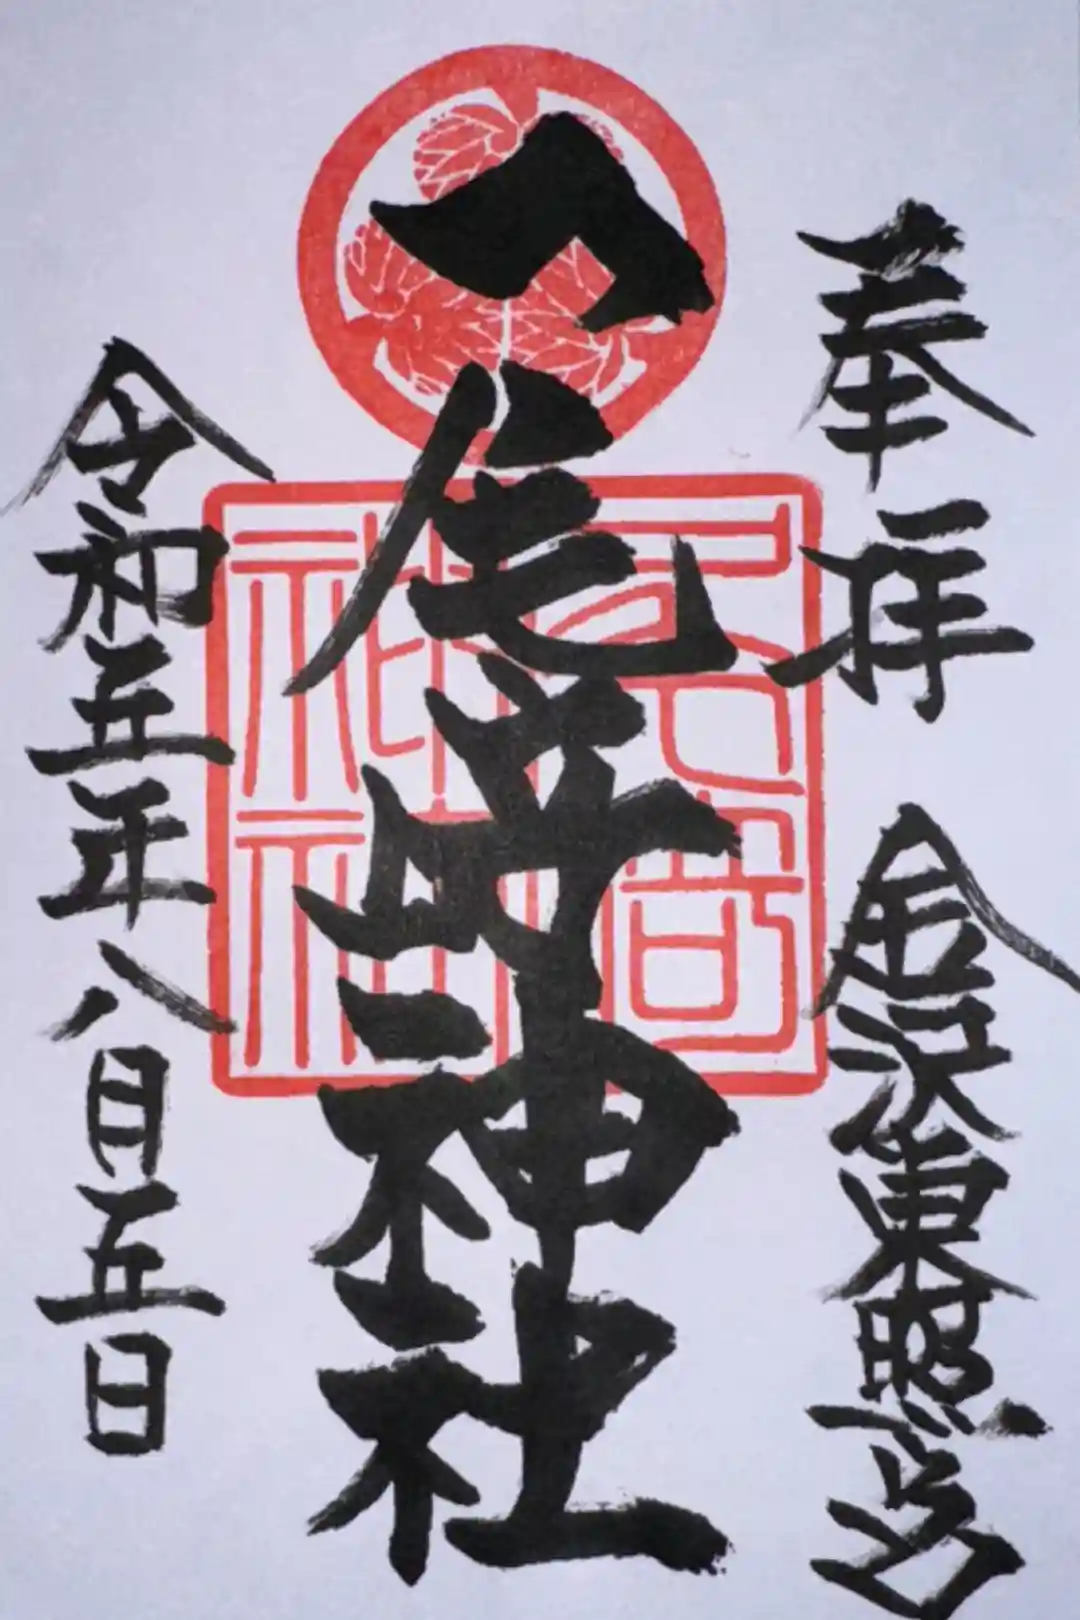 奉拝　金沢東照宮
尾﨑神社
尾崎神社
令和五年八月五日